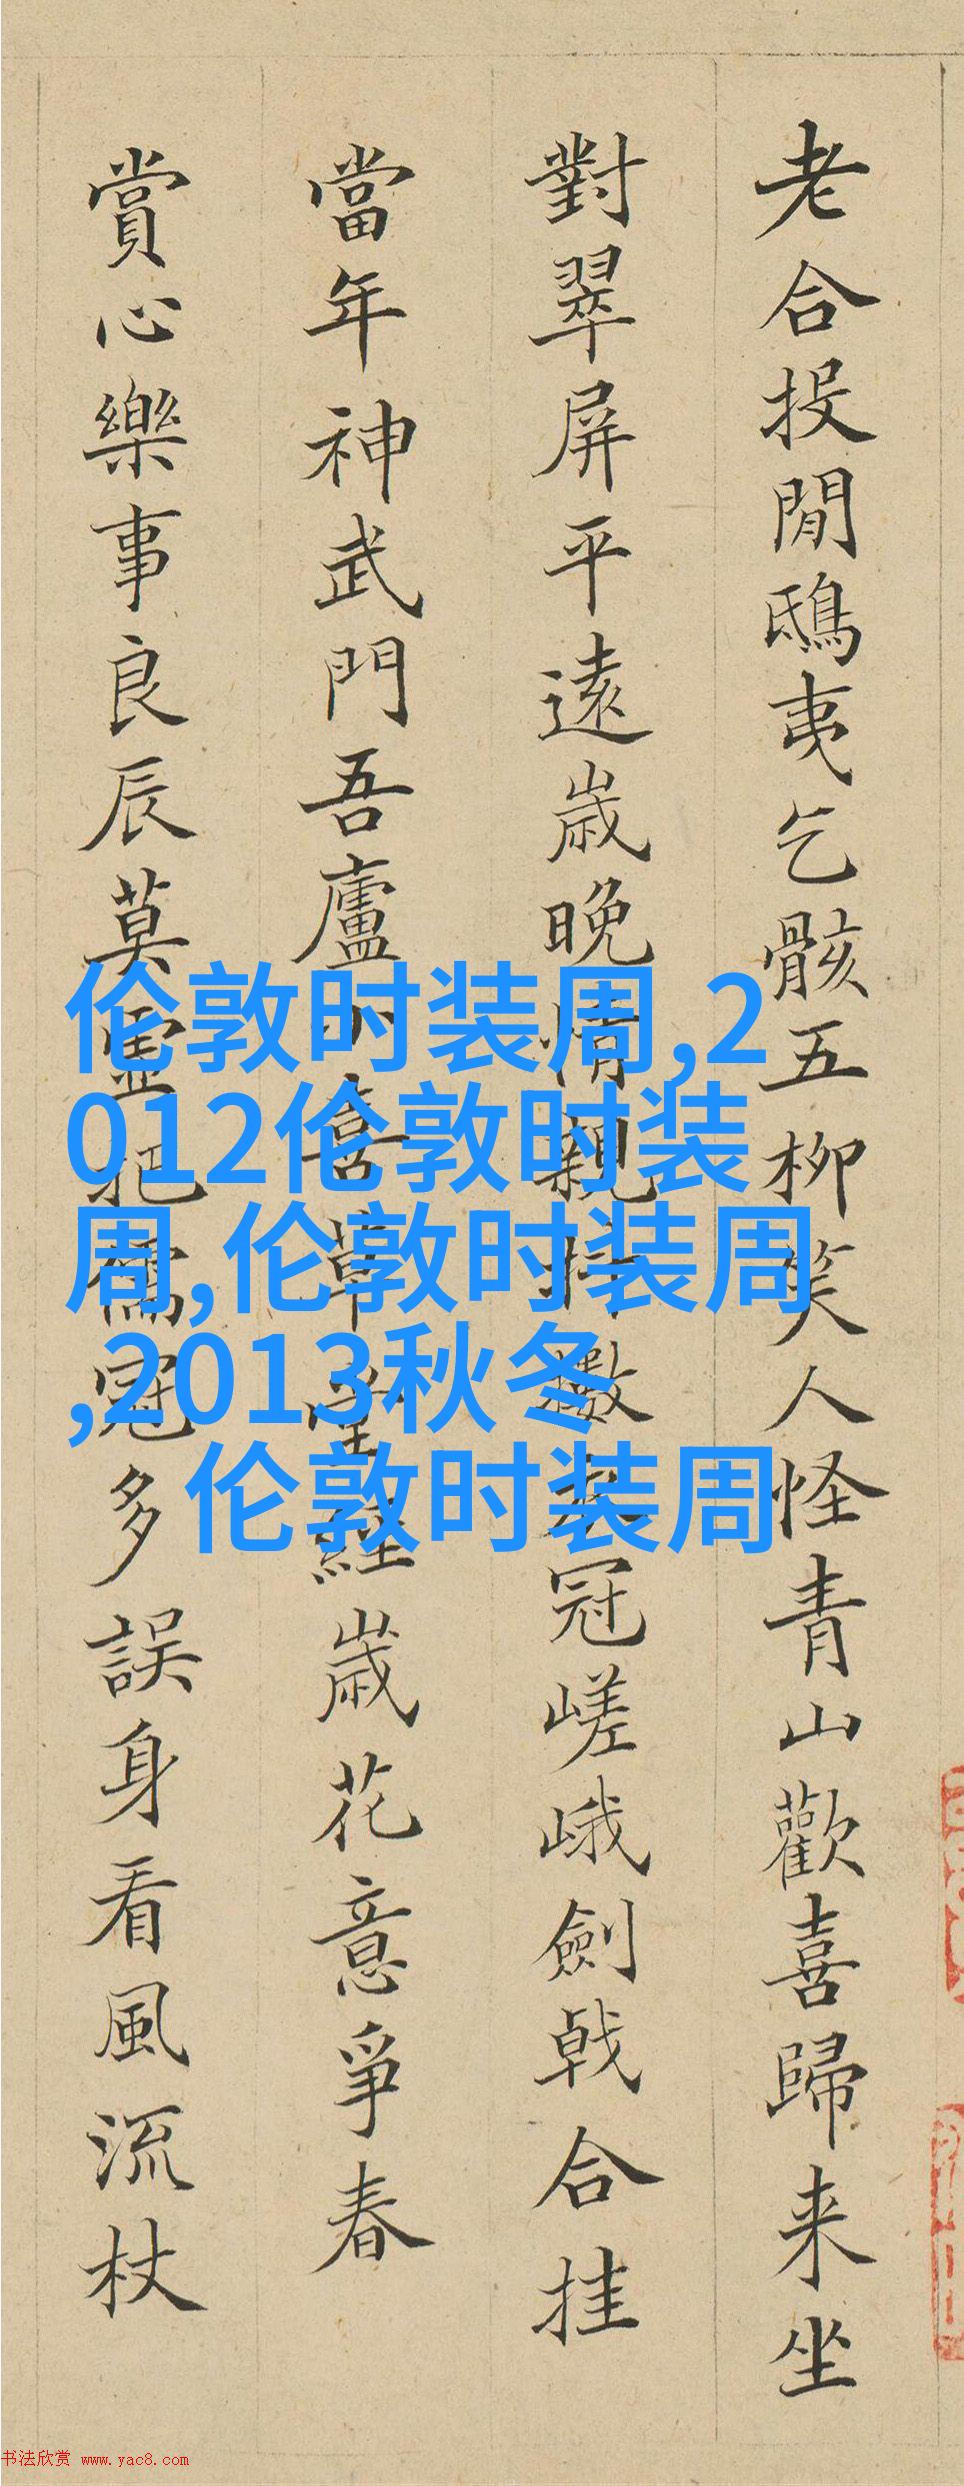 老合投閒鴟夷乞骸五柳笑人怪青山歡喜歸来坐
對翠屏平遠歲晚情親冠嵯峨劍戟合挂
當年神武門吾廬小喜草堂經歲花意爭春
賞心樂事良辰莫虛把儒冠多誤身看風流杖
伦敦时装周,2
012伦敦时装
周,伦敦时装周
,2013秋冬
伦敦时装周
书法欣赏 www.yac8.com